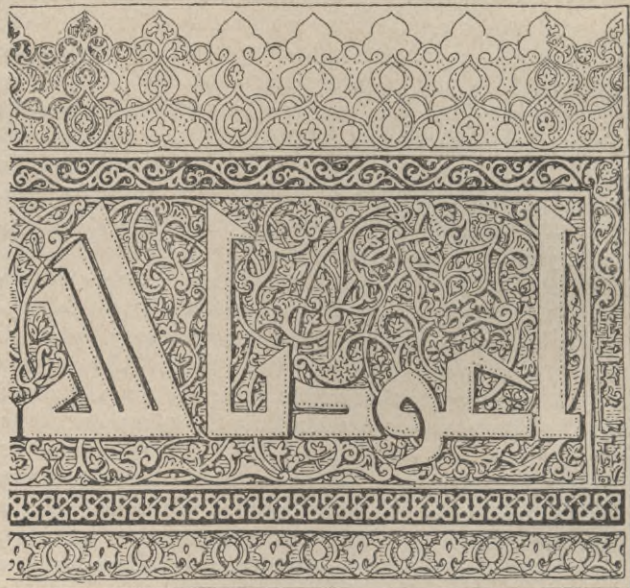 اعوذ بالله